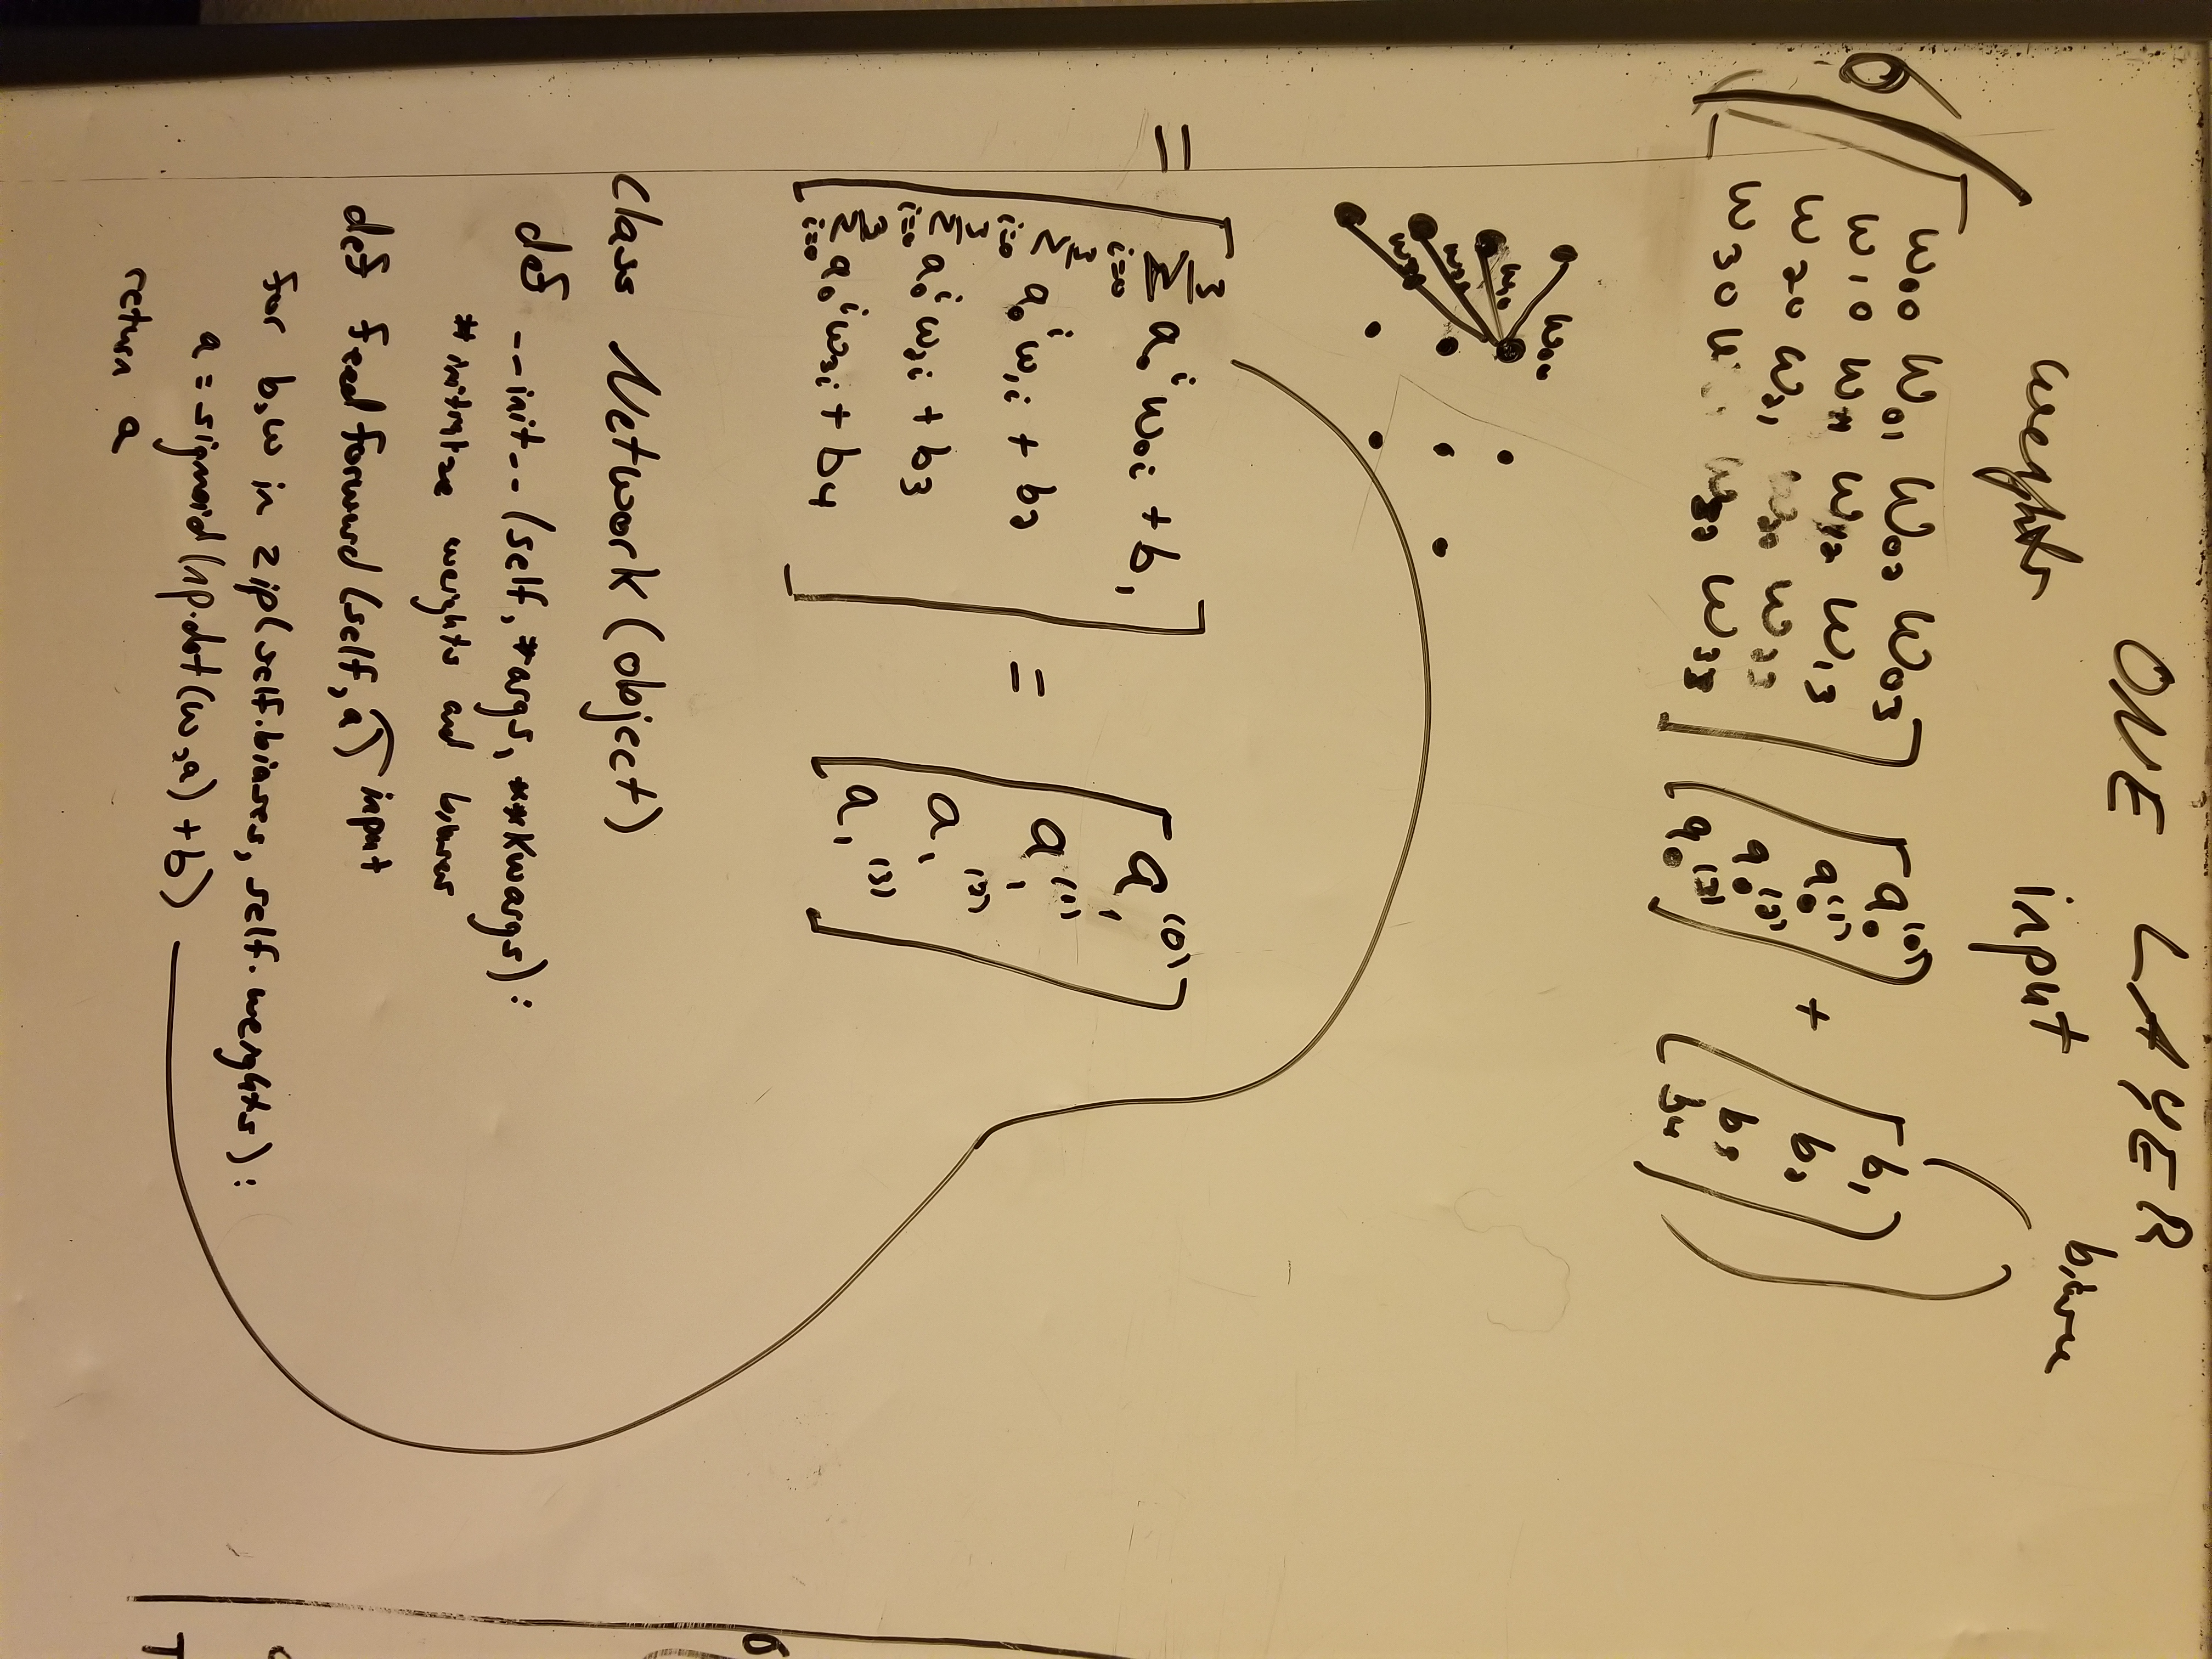 ONE LAYER
weights input biases
σ
w00 w01 w02 w03
w10 w11 w12 w13
w20 w21 w22 w23
w30 w32 w33
a0(0)
a0(1)
a0(2)
a0(3)
+
b1
b2
b3
b4
w00
w10
=
3 Σ i=0 a0^i w0i + b1
3 Σ i=0 a0^i w1i + b2
3 Σ i=0 a0^i w2i + b3
3 Σ i=0 a0^i w3i + b4
=
a1(0)
a1(1)
a1(2)
a1(3)
class Network (object)
def __init__ (self, *args, **kwargs):
# initialize weights and biases
def feedforward (self, a) input
for b, w in zip(self.biases, self.weights):
a = sigmoid(np.dot(w, a) + b)
return a
σ
T